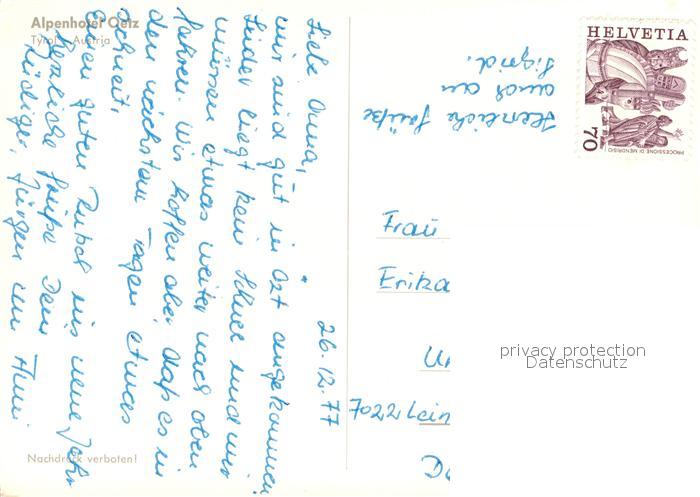 Alpenhotel Oetz
Tyrol - Austria
26.12.77
Liebe Oma,
wir sind gut in Özt angekommen,
Leider liegt kein Schnee und wir
müssen etwas weiter nach oben
fahren. Wir hoffen aber, daß es in
den nächsten Tagen etwas
schneit.
Einen guten Rutsch ins neue Jahr
Herzliche Grüße Dein
Rüdiger, Jürgen un
Herzliche Grüße
auch an
Sigrid.
HELVETIA
70
PROCESSIONE DI MENDRISIO
Frau
Erika
7022 Lein
privacy protection
Datenschutz
Nachdruck verboten!